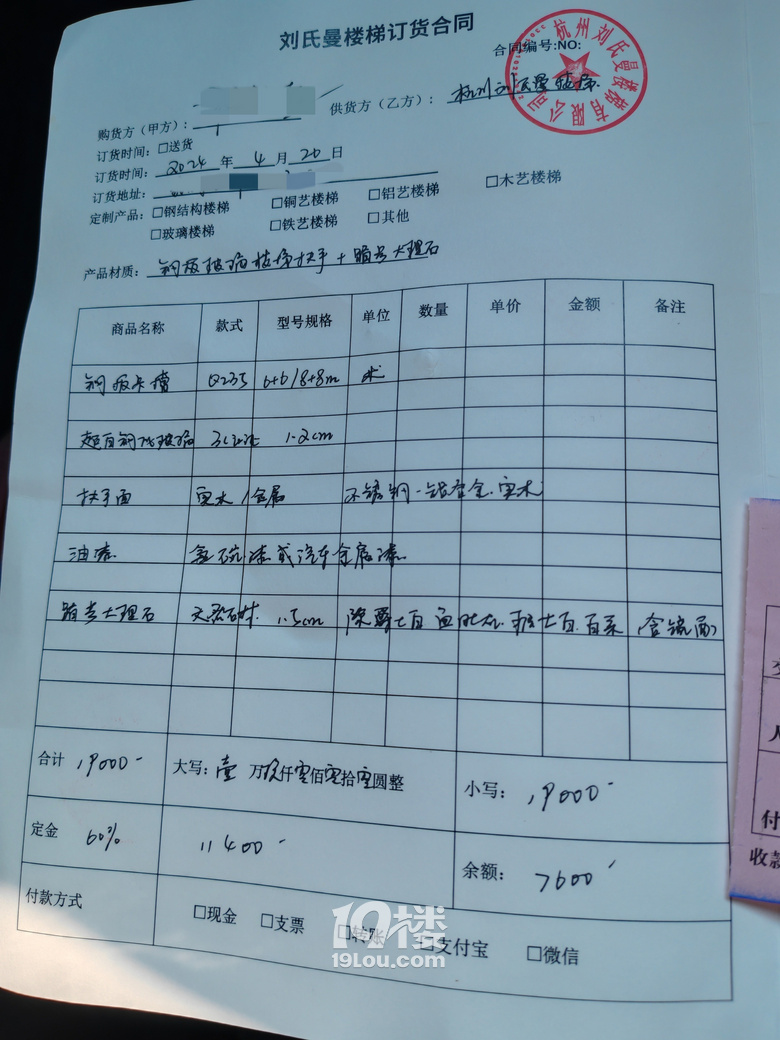 刘氏曼楼梯订货合同
合同编号:NO:
杭州刘氏曼楼梯有限公司
购货方（甲方）：
供货方（乙方）：杭州刘氏曼楼梯
订货时间：□送货
订货时间：2024年4月20日
订货地址：
定制产品：□钢结构楼梯 □铜艺楼梯 □铝艺楼梯 □木艺楼梯
□玻璃楼梯 □铁艺楼梯 □其他
产品材质：钢板玻璃楼梯扶手+踏步大理石
商品名称 款式 型号规格 单位 数量 单价 金额 备注
钢板卡槽 Q235 6+6/8+8m 米
超白钢化玻璃 1.2cm
扶手面 实木/金属 不锈钢 铝合金 实木
油漆 氟硫漆或汽车金属漆
踏步大理石 天然石材 1.5cm 除爵士白 鱼肚白 白系
合计 19000
大写：壹万玖仟零佰零拾零圆整
小写：19000
定金 60% 11400
余额：7600
付款方式 □现金 □支票 □转账 □支付宝 □微信
19楼
19lou.com
人
付
收款